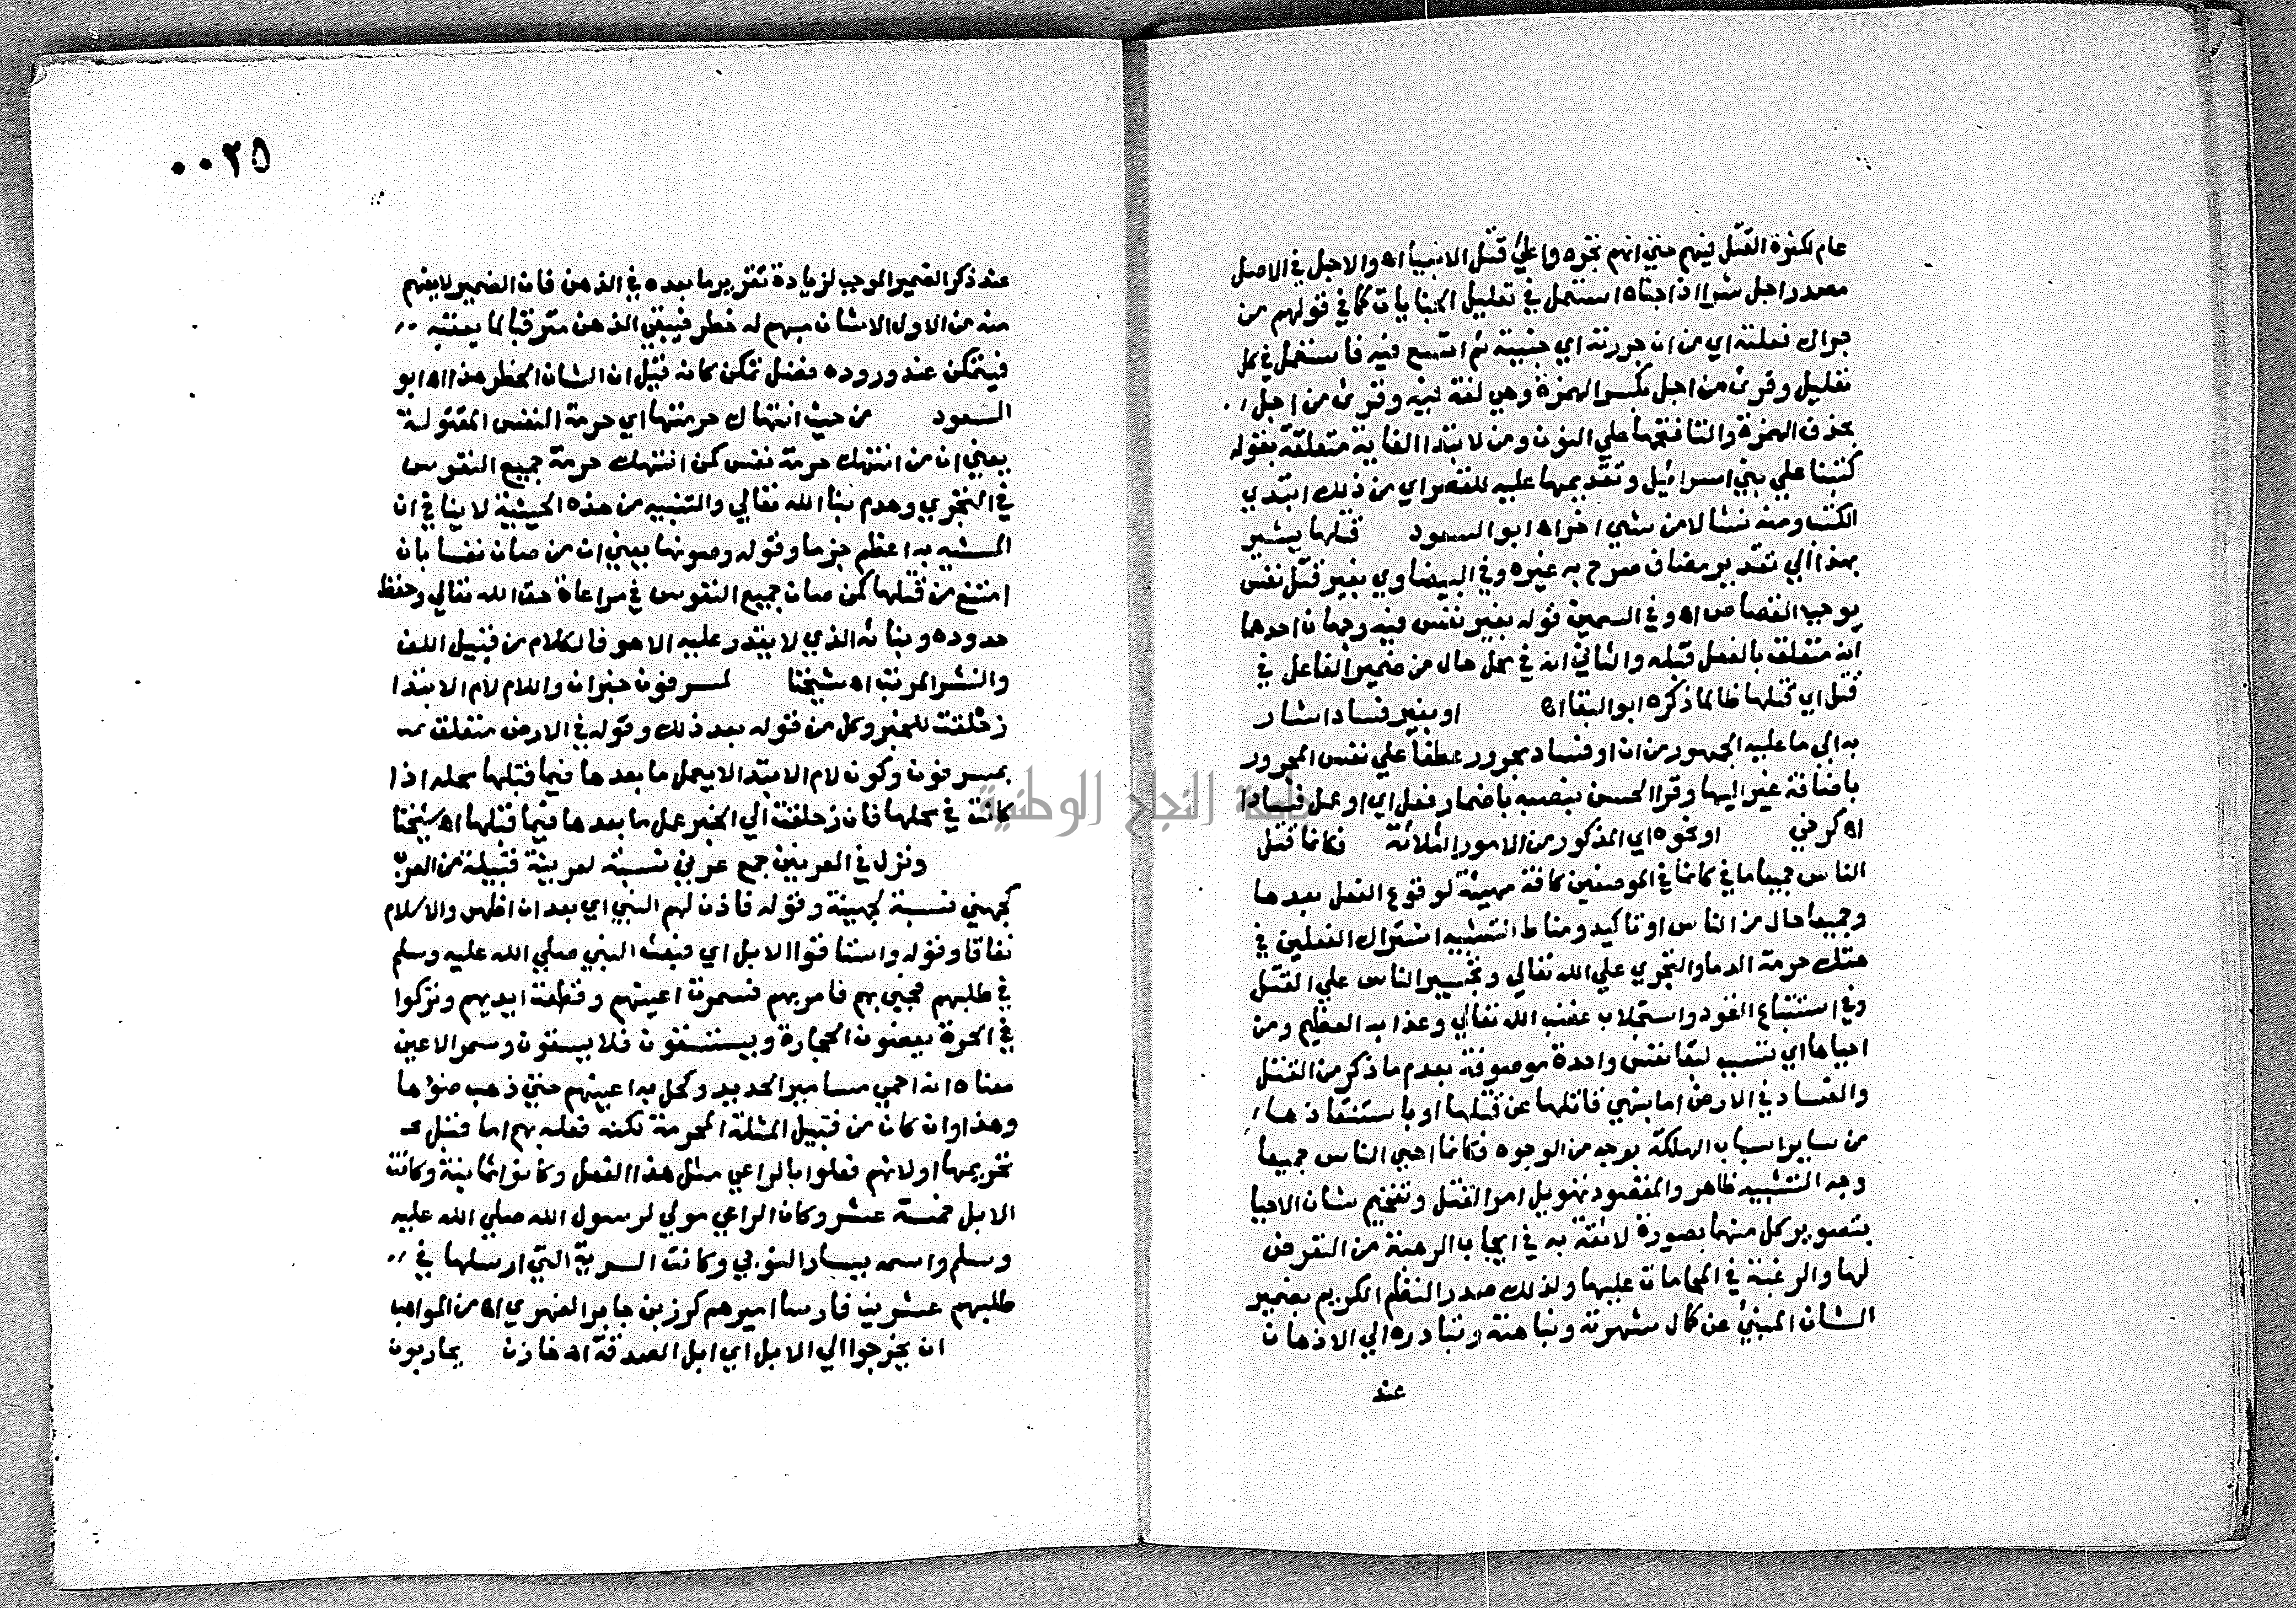 عام لكثرة القتل فيهم حتي انهم تجروا علي قتل الانبيا اه والاجل في الاصل
مصدر اجل شرا اذا جناه استعمل في تعليل الجنايات كما في قولهم من
جراك فعلته اي من ان جررته اي جنيته ثم اتسع فيه فاستعمل في كل
تعليل وقرئ من اجل بكسر الهمزة وهي لغة فيه وقرئ من اجل
بحذف الهمزة والقا فتحها علي النون ومن لابتدا الغاية متعلقة بقوله
كتبنا علي بني اسرائيل وتقديمها عليه للقصر اي من ذلك ابتدي
الكتب ومنه نشا لا من شي اخر اه ابو السعود قتلها يشير
بهذا الي تقدير مضاف صرح به غيره وفي البيضاوي بغير قتل نفس
يوجب القصاص اه وفي السمين قوله بغير نفس فيه وجهان احدهما
انه متعلق بالفعل قبله والثاني انه في محل حال من ضمير الفاعل في
قتل اي قتلها ظالما ذكره ابو البقا اه او بغير فساد اشار
به الي ما عليه الجمهور من ان او فساد مجرور عطفا علي نفس المجرور
باضافة غير اليها وقرا الحسن بنصبه باضمار فعل اي او عمل فسادا
اه كرخي او نحوه اي المذكور من الامور الثلاثة فكانما قتل
الناس جميعا ما في كانما في الموضعين كافة مهيئة لوقوع الفعل بعدها
وجميعا حال من الناس او تاكيد ومناط التشبيه اشتراك الفعلين في
هتك حرمة الدما والتجري علي الله تعالي وتجسير الناس علي القتل
وفي استتباع القود واستجلاب غضب الله تعالي وعذابه العظيم ومن
احياها اي تسبب لبقا نفس واحدة موصوفة بعدم ما ذكر من القتل
والفساد في الارض اما بنهي قاتلها عن قتلها او باستنقاذها
من ساير اسباب الهلكة بوجه من الوجوه فكانما احيي الناس جميعا
وجه التشبيه ظاهر والمقصود تهويل امر القتل وتفخيم شان الاحيا
بتصوير كل منهما بصورة لائقة به في ايجاب الرهبة من التعرض
لها والرغبة في المحامات عليها ولذلك صدر النظم الكريم بضمير
الشان المبنئ عن كمال شهرته ونباهته وتبادره الي الاذهان
عند
٠٠٢٥
عند ذكر الضمير الموجب لزيادة تقرير ما بعده في الذهن فان الضمير لا يفهم
منه من الاول الا شان مبهم له خطر فيبقي الذهن مترقبا لما يعقبه
فيتمكن عند وروده فضل تمكن كانه قيل ان الشان الخطر هذا اه ابو
السعود من حيث انتهاك حرمتها اي حرمة النفس المقتولة
يعني ان من انتهك حرمة نفس كمن انتهك حرمة جميع النفوس
في التجري وهدم بنا الله تعالي والتنبيه من هذه الحيثية لا ينافي ان
المشبه به اعظم جزما وقوله وصونها يعني ان من صان نفسا بان
امتنع من قتلها كمن صان جميع النفوس في مراعاة حق الله تعالي وحفظ
حدوده وبنائه الذي لا يقدر عليه الا هو فالكلام من قبيل اللف
والنشر المرتب اه شيخنا لمسرفون خبران واللام لام الابتدا
زحلقت للخبر وكل من قوله بعد ذلك وقوله في الارض متعلق
بمسرفون وكون لام الابتدا لا يعمل ما بعدها فيما قبلها محله اذا
كانت في محلها فان زحلقت الي الخبر عمل ما بعدها فيما قبلها اه شيخنا
ونزل في العرنيين جمع عرني نسبة لعرينة قبيلة من العرب
كجهني نسبة لجهينة وقوله فاذن لهم النبي اي بعد ان اظهروا الاسلام
نفاقا وقوله واستاقوا الابل اي فبعث النبي صلي الله عليه وسلم
في طلبهم فجيئ بهم فامر بهم فسمرت اعينهم وقطعت ايديهم وتركوا
في الحرة يعضون الحجارة ويستسقون فلا يسقون وسمر الاعين
معناه انه احمي مسامير الحديد وكحل به اعينهم حتي ذهب ضوؤها
وهذا وان كان من قبيل المثلة المحرمة لكنه فعله بهم اما قبل
تحريمها او لانهم فعلوا بالراعي مثل هذا الفعل وكانوا ثمانية وكانت
الابل خمسة عشر وكان الراعي مولي لرسول الله صلي الله عليه
وسلم واسمه يسار النوبي وكانت السرية التي ارسلها في
طلبهم عشرين فارسا اميرهم كرز بن جابر الفهري اه من المواهب
ان يخرجوا الي الابل اي ابل الصدقة اه خازن يحاربون
جامعة النجاح الوطنية